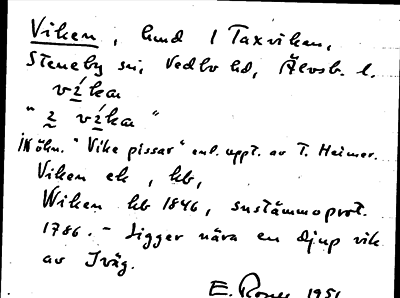 Viken, hmd l Taxviken,
Steneby sn, Vedbo hd, Älvsb. l.
víka
" 2 víka "
Inöhn. "Vike pissar" enl. uppt. av T. Heimer.
Viken ek, kb,
Wiken kb 1846, sustämmoprot.
1786. - Ligger nära en djup vik
av Iväg.
E. 1951